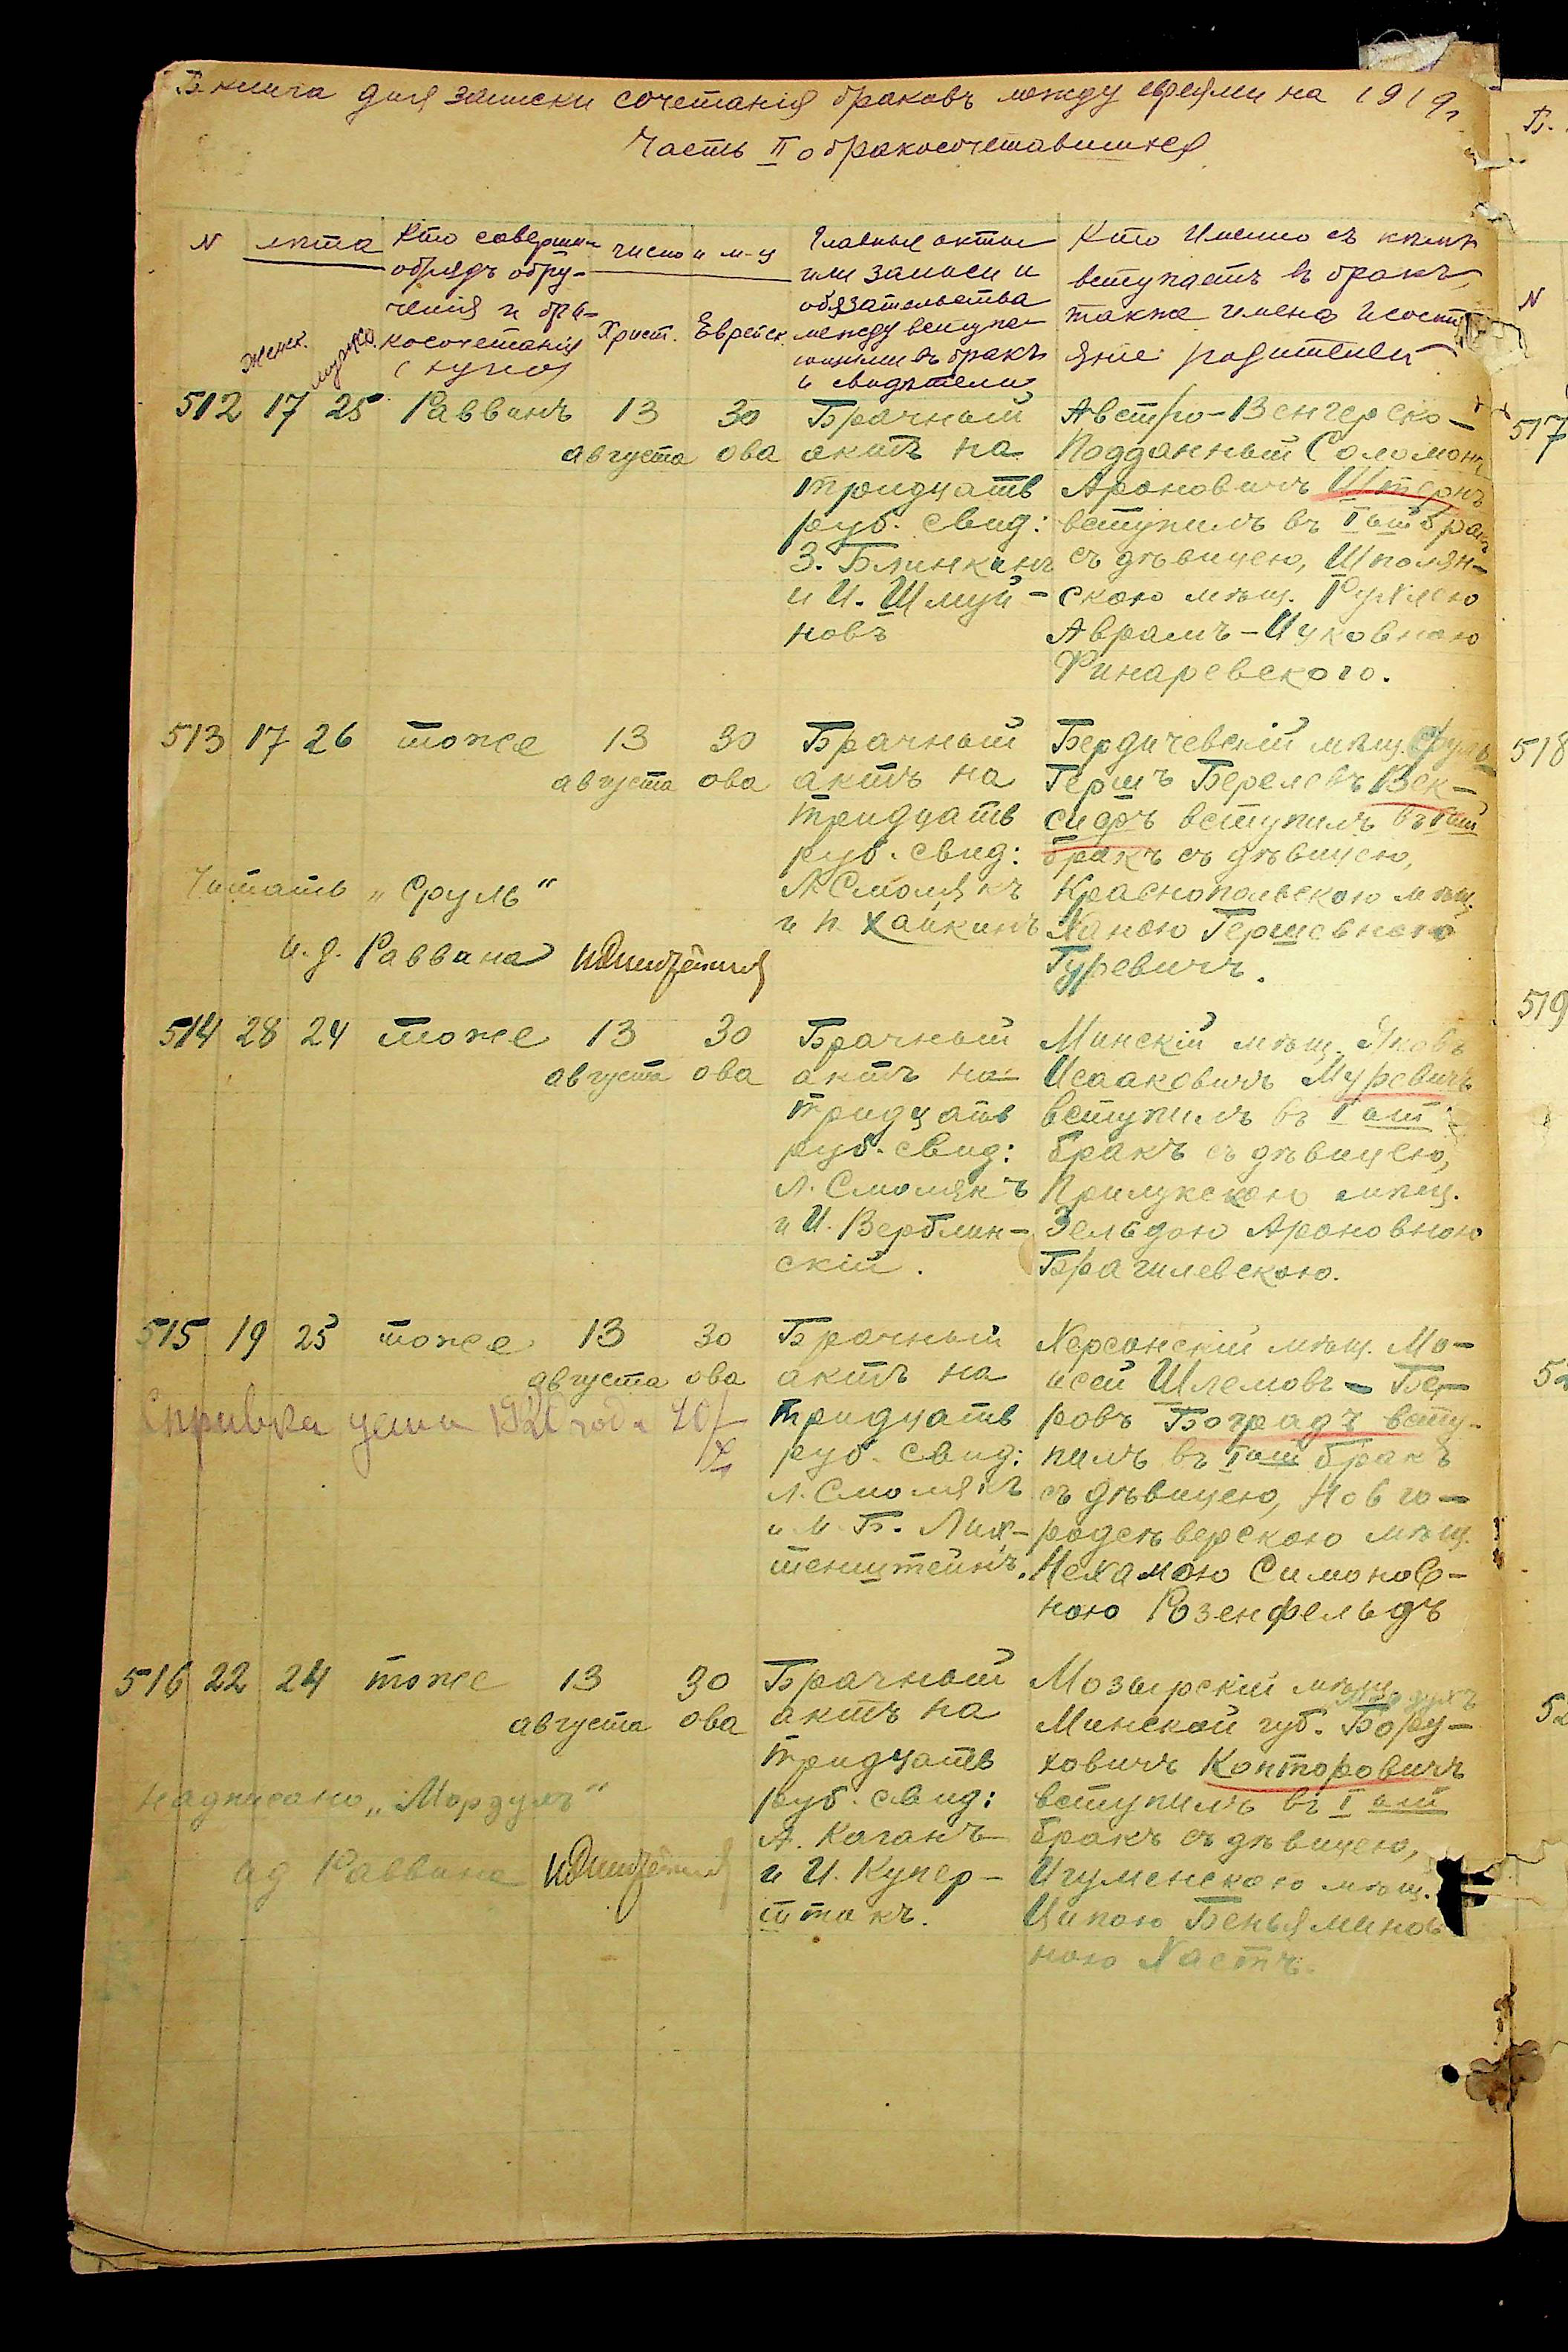 Б. книга для записки сочетанія браковъ между евреями на 1919г
Часть II о бракосочетавшихся
N
лѣта
женск.
мужск.
Кто соверши-
обрядъ обру-
ченія и бра-
косочетанія
(хупо)
число и м-ц
Христ.
Еврейск.
Главные акты
или записи и
обязательства
между вступа-
ющими въ бракъ
и свидѣтели
Кто Именно съ кѣмъ
вступаетъ въ бракъ,
также имена и состо
яніе родителей
512 17 25 Раввинъ 13 30
августа ова
Брачный
актъ на
тридцать
руб. свид:
З. Блинкинъ
и И. Шмуй-
новъ
Австро-Венгерско-
Подданный Соломонъ
Ароновичъ Штернъ
вступилъ въ Iый бракъ
съ дѣвицею, Шполян-
скою мѣщ. Рухлею
Аврамъ-Ицковною
Финаревского.
513 17 26 тоже 13 30
августа ова
Брачный
актъ на
тридцать
руб. свид:
Л. Смолякъ
и П. Хайкинъ
Бердичевскій мѣщ. Сруль
Гершъ Берелевъ Век-
сиръ вступилъ въ Iый
бракъ съ дѣвицею,
Краснопольскою мѣщ.
Ханою Гершевною
Гуревичъ.
Читать „Сруль“
и. д. Раввина
514 28 24 тоже 13 30
августа ова
Брачный
актъ на
тридцать
руб. свид:
Л. Смолякъ
и И. Верблин-
скій.
Минскій мѣщ. Яковъ
Исааковичъ Муревичъ
вступилъ въ Iый
бракъ съ дѣвицею,
Прилукскою мѣщ.
Зельдою Ароновною
Брагилевскою.
515 19 25 тоже 13 30
августа ова
Брачный
актъ на
тридцать
руб. свид:
Л. Смолякъ
и М. Б. Лих-
тенштейнъ.
Херсонскій мѣщ. Мо-
исей Шлемовъ-Бе-
ровъ Боградъ всту-
пилъ въ Iый бракъ
съ дѣвицею, Новго-
родсѣверскою мѣщ.
Нехамою Симонов-
ною Розенфельдъ
Справка 1920 года 20/X
516 22 24 тоже 13 30
августа ова
Брачный
актъ на
тридцать
руб. свид:
А. Каганъ
и И. Купер-
штокъ.
Мозырскій мѣщ.
Минской губ. Бору-
ховичъ Конторовичъ
вступилъ въ I ый
бракъ съ дѣвицею,
Игуменскою мѣщ.
Ципою Беньяминов
ною Хастъ.
Надписано „Мордухъ“
ид Раввина
Б.
N
517
518
519
52
52